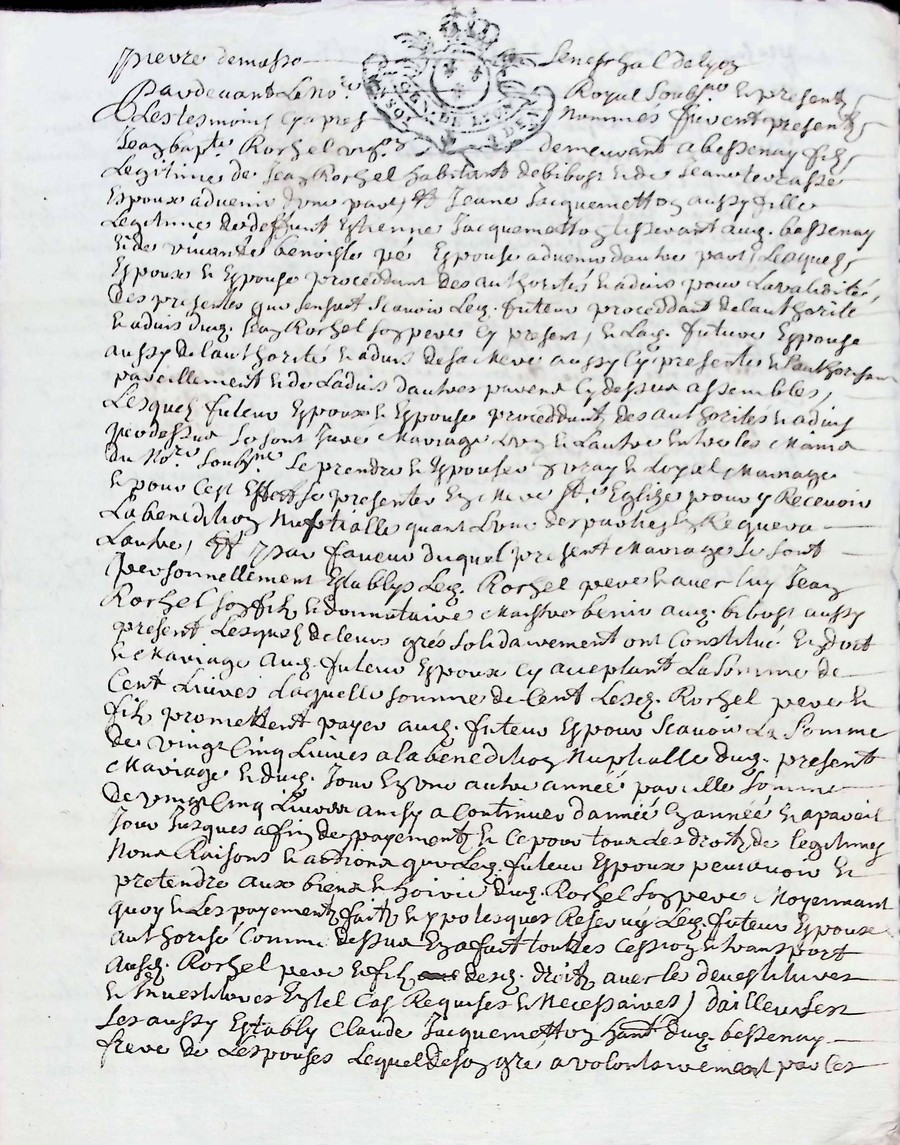 Pierre demasso Seneschal de lyon
Pardevant Le No.re Royal soub.né Et presents
Les tesmoins cy apres Nommes furent presents
Jean bapt.e Rochel demeurant a bessenay fils
Legitime de Jean Rochel habitant de bibost Et de Jeanne terrasse
Espoux advenir d'une part, Et Jeanne Jacquemetton aussy fille
Legitime de deffunt Estienne Jacquemetton vivant aud. bessenay
Et de vivante benoiste Espouse advenir d'autre part Lesquels
Espoux Et Espouse proceddant des authorités Et advis pour La validité
Des presentes qui s'ensuit Scavoir Led. futeur proceddant de lauthorité
Et advis dud. Jean Rochel son pere Cy present, Et Lad. future Espouse
aussy de L'authorité Et advis de sa Mere aussy Cy presente Et L'authorisant
pareillement Et de L'advis d'autres parens Cy dessus assembles,
Lesques futeur Espoux Et Espouse proceddant des authorites Et advis
que dessus Se sont Juré Mariage L'un Et Lautre Entre les Mains
Du No.re Soub.né Se prendre Et Espouser En vray Et Loyal Mariage
Et pour Cest Effect se presenter En N.re Mere S.te Eglise pour y Recevoir
La benediction Nuptialle quant L'une des parties En Requera
Lautre, Et par faveur duquel present Mariage Se sont
personnellement Establys Led. Rochel pere Et avec luy Jean
Rochel son fils Et donnataire aud. bibost aussy
present Lesques de leurs grés solidairement ont Constitué En dot
Et Mariage aud. futeur Espoux Cy acceptant La Somme de
Cent Livres Laquelle somme de Cent Lesd. Rochel pere Et
fils promettent payer aud. futeur Espoux Scavoir La Somme
De vingt Cinq Livres a la benediction Nuptialle dud. present
Mariage Et dud. Jour En une autre année pareille Somme
De vingt Cinq Livres ainsy a Continuer d'année En année Et a pareil
Jour Jusques a fin de payement Et Ce pour tous Les droits de legitimes
Noms Raisons Et actions que Led. futeur Espoux peut avoir Et
pretendre aux biens Et hoirie dud. Rochel son pere Moyennant
quoy Et Les payements faits Led. futeur Espoux
authorisé Comme dessus En a fait toutes Cession Et transport
Ausd. Rochel pere Et fils desd. droits avec les devestitures
Et Investitures En tel Cas Requises Et Necessaires, D'ailleurs
Ses aussy Estably Claude Jacquemetton hant dud. bessenay
frere de Lespouses Lequel de son gre a volontairement par Ces